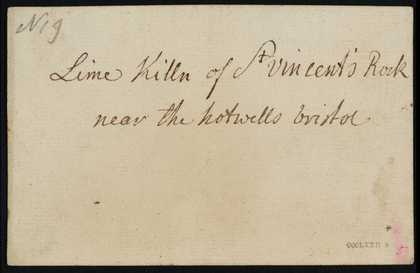 N 9
Lime Killn of St Vincent's Rock
near the hotwells bristol